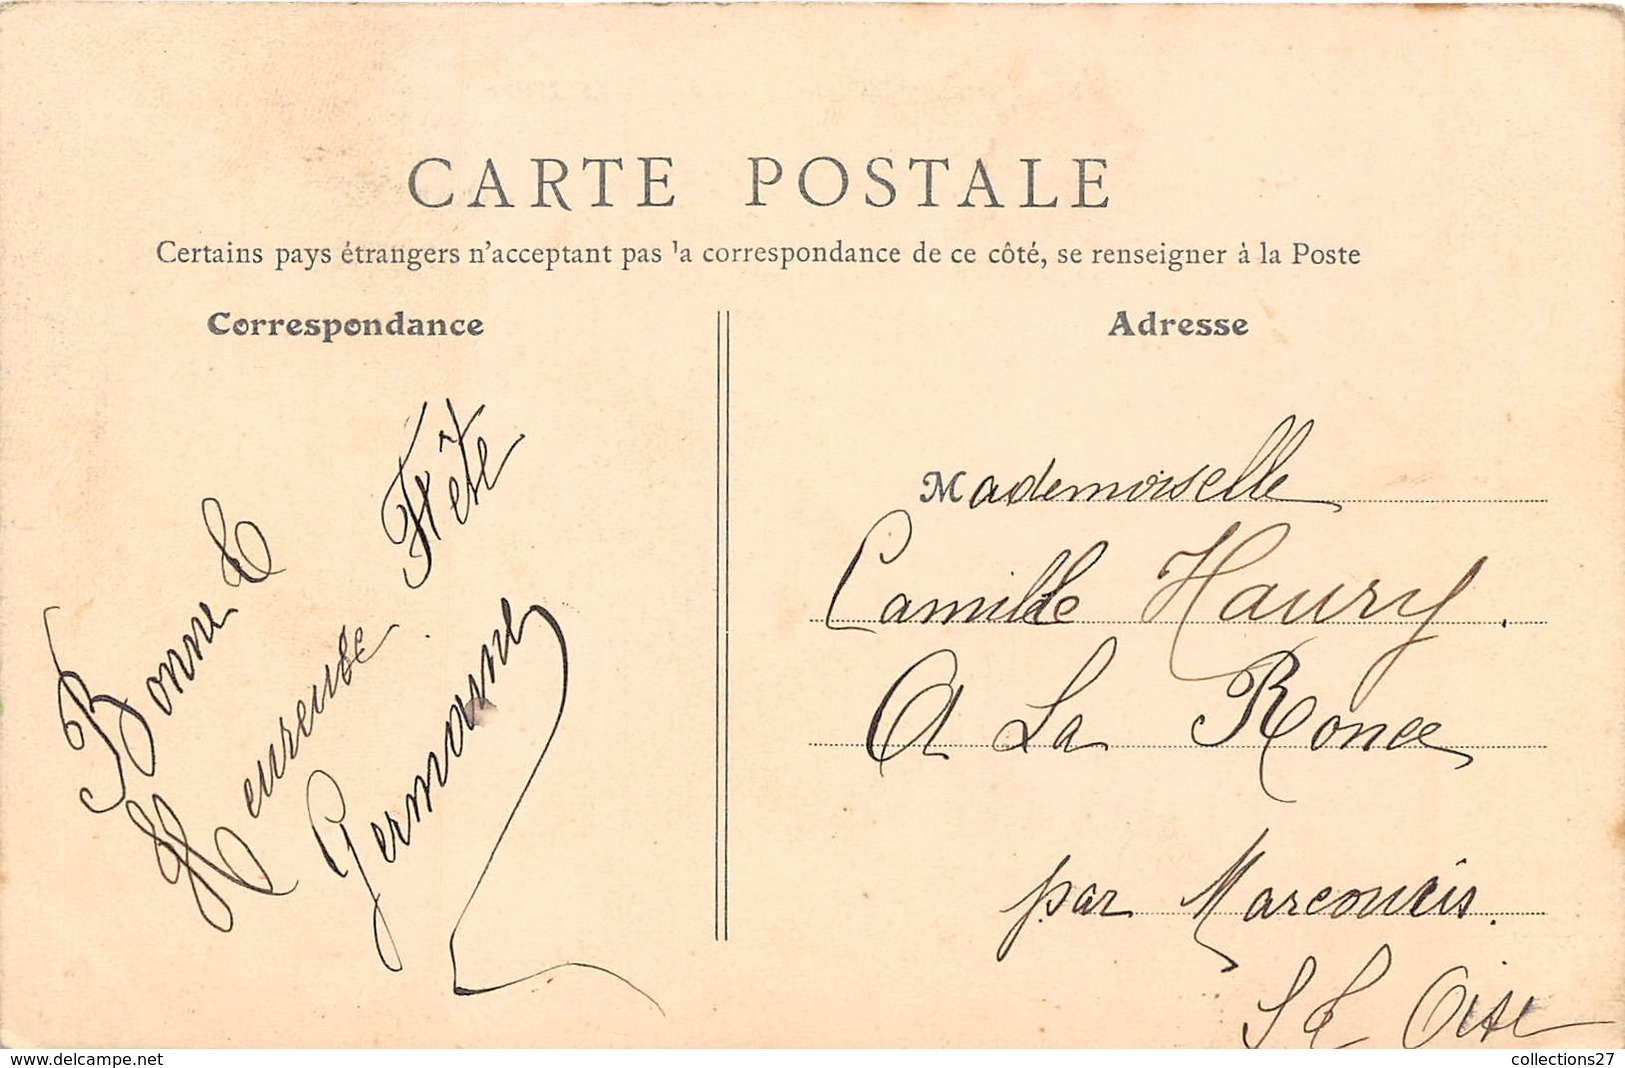 CARTE POSTALE
Certains pays étrangers n'acceptant pas la correspondance de ce côté, se renseigner à la Poste
Correspondance
Adresse
Bonne &
Heureuse Fête
Germaine
Mademoiselle
Camille Haury.
A La Ronce
par Marcoucis.
S & Oise
collections27